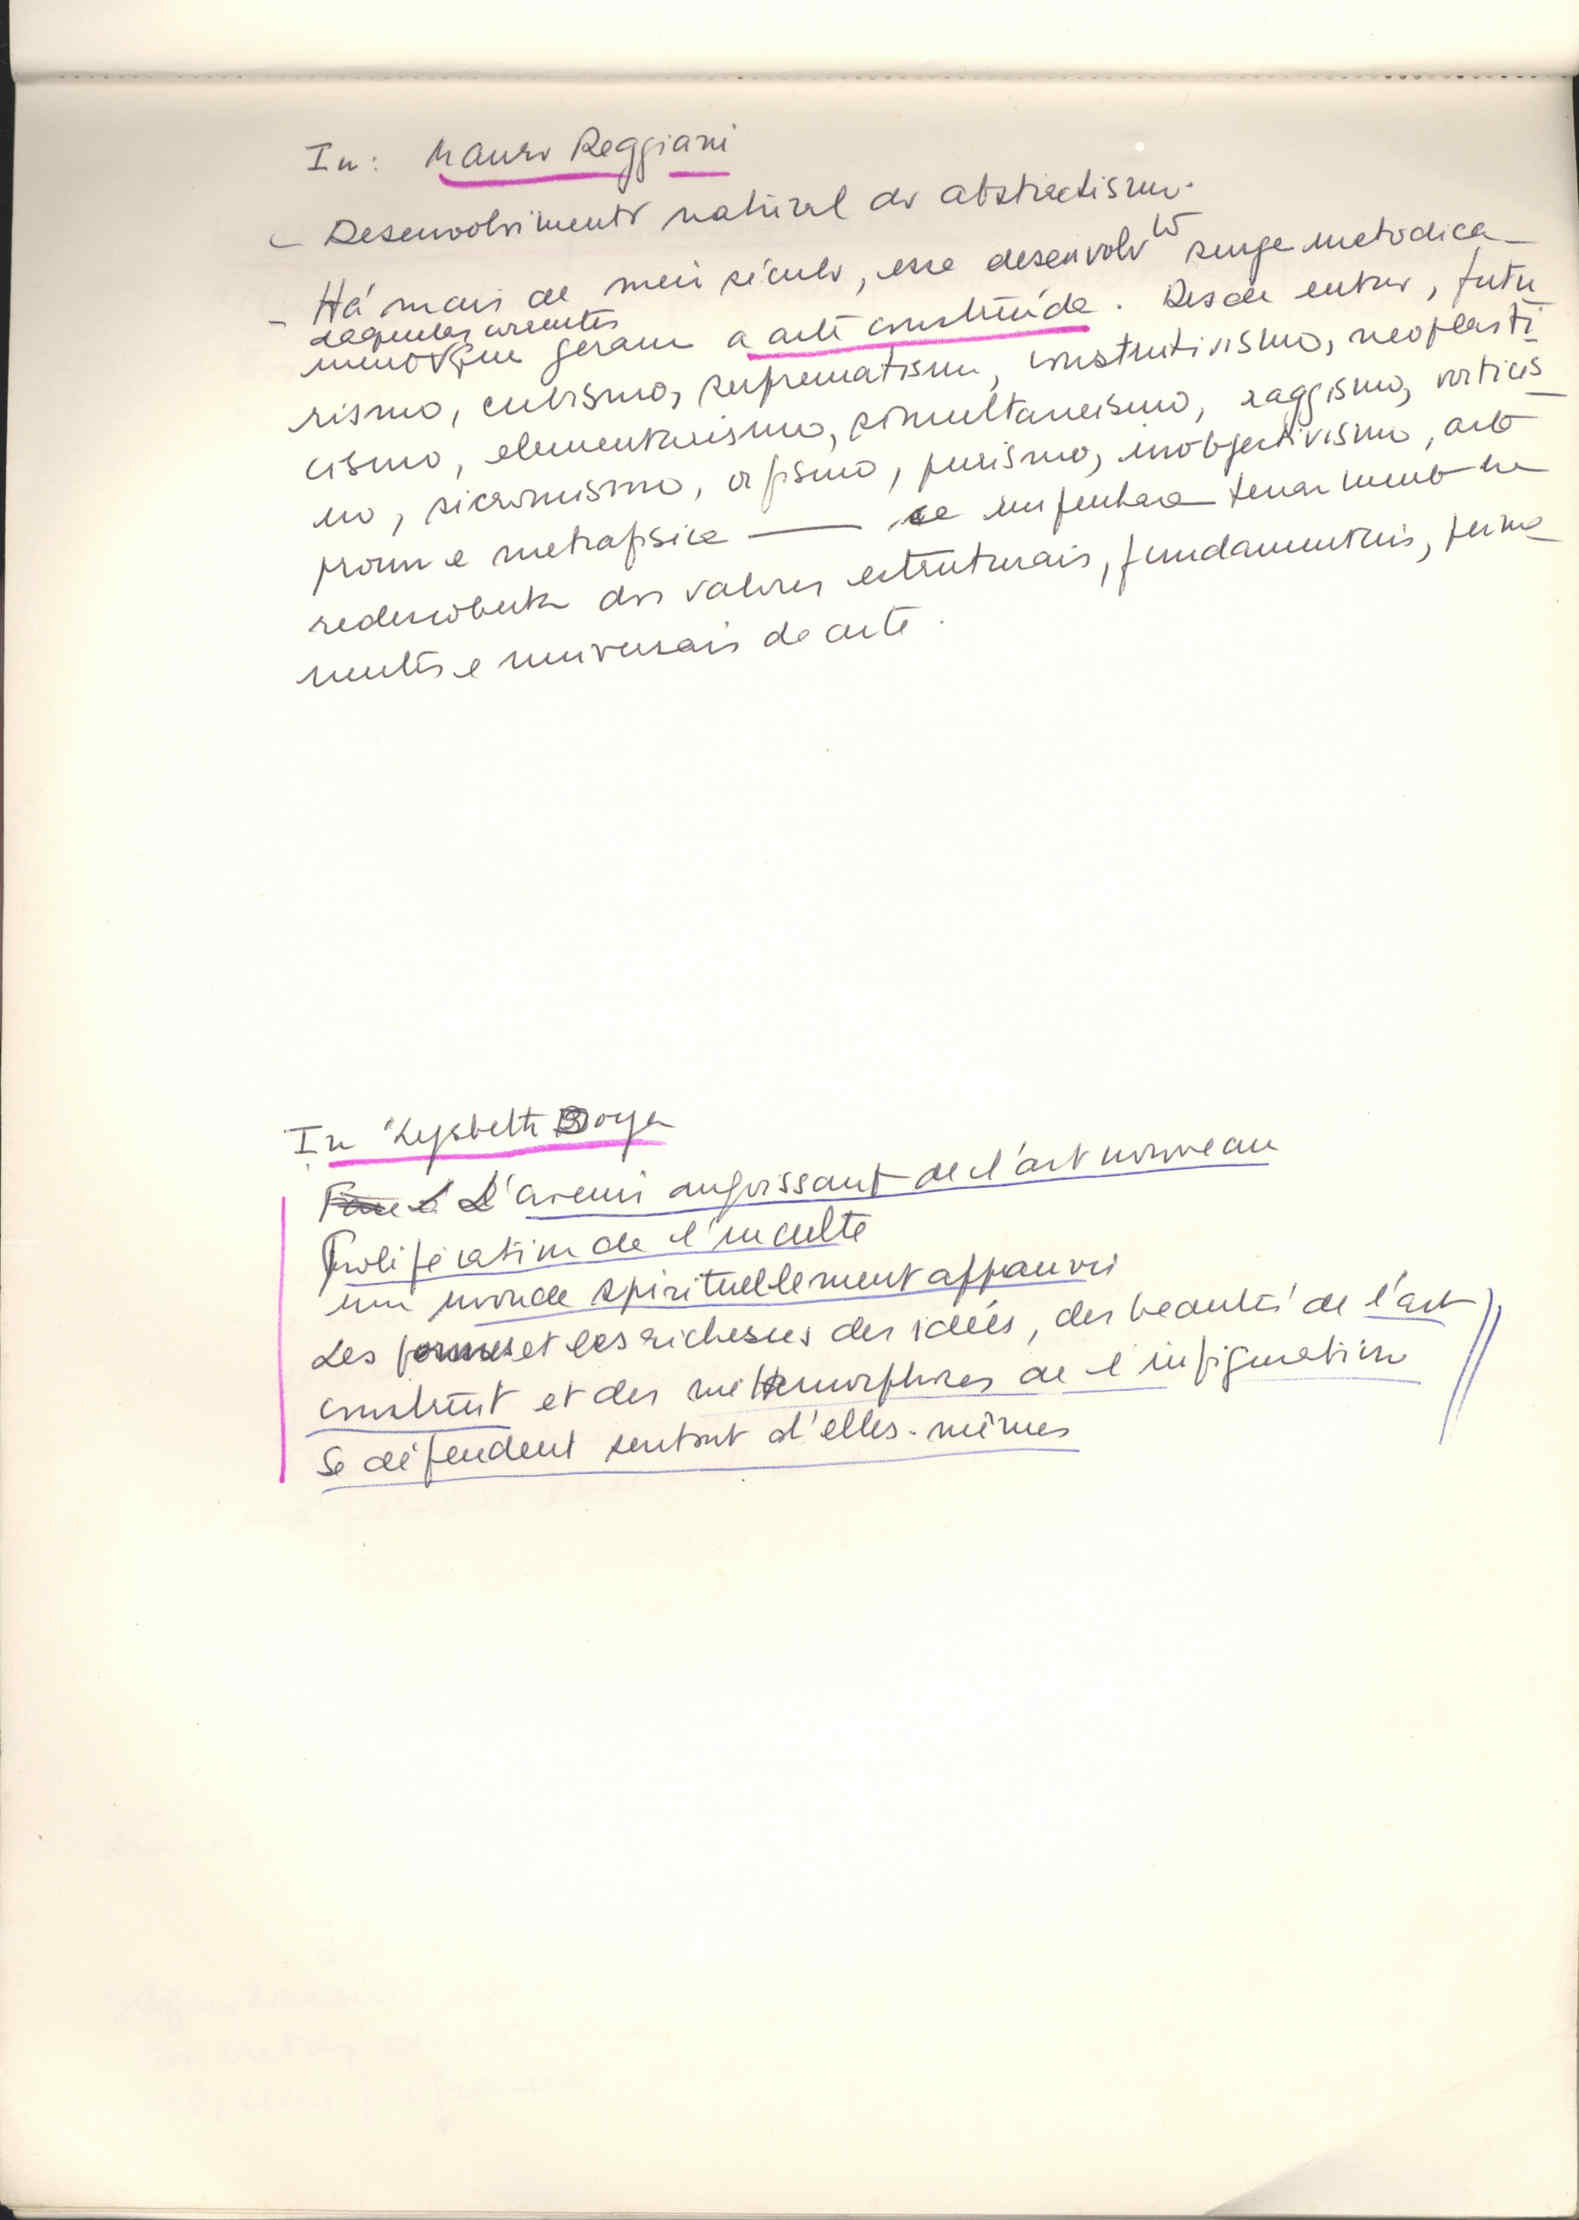 In: Mauro Reggiani
- Desenvolvimento natural do abstractismo.
- Há mais de meio século, esse desenvolvto surge metodica-
daquelas correntes
mente que geram a arte construída. Desde então, futu
rismo, cubismo, suprematismo, construtivismo, neoplasti
cismo, elementarismo, simultaneismo, raggismo, vorticis
mo, sicromismo, orfismo, purismo, inobjectivismo, arte
proun e metafisica — se empenhara tenazmente na
redescoberta dos valores estruturais, fundamentais, perma
nentes e universais de arte.
In Lysbeth Boyer
L'avenir angoissant de l'art nouveau
Prolifération de l'inculte
un monde spirituellement appauvri
Les formes et les richesses des idées, des beautés de l'art
construit et des métamorphoses de l'infiguration
se défendent sentant d'elles-mêmes